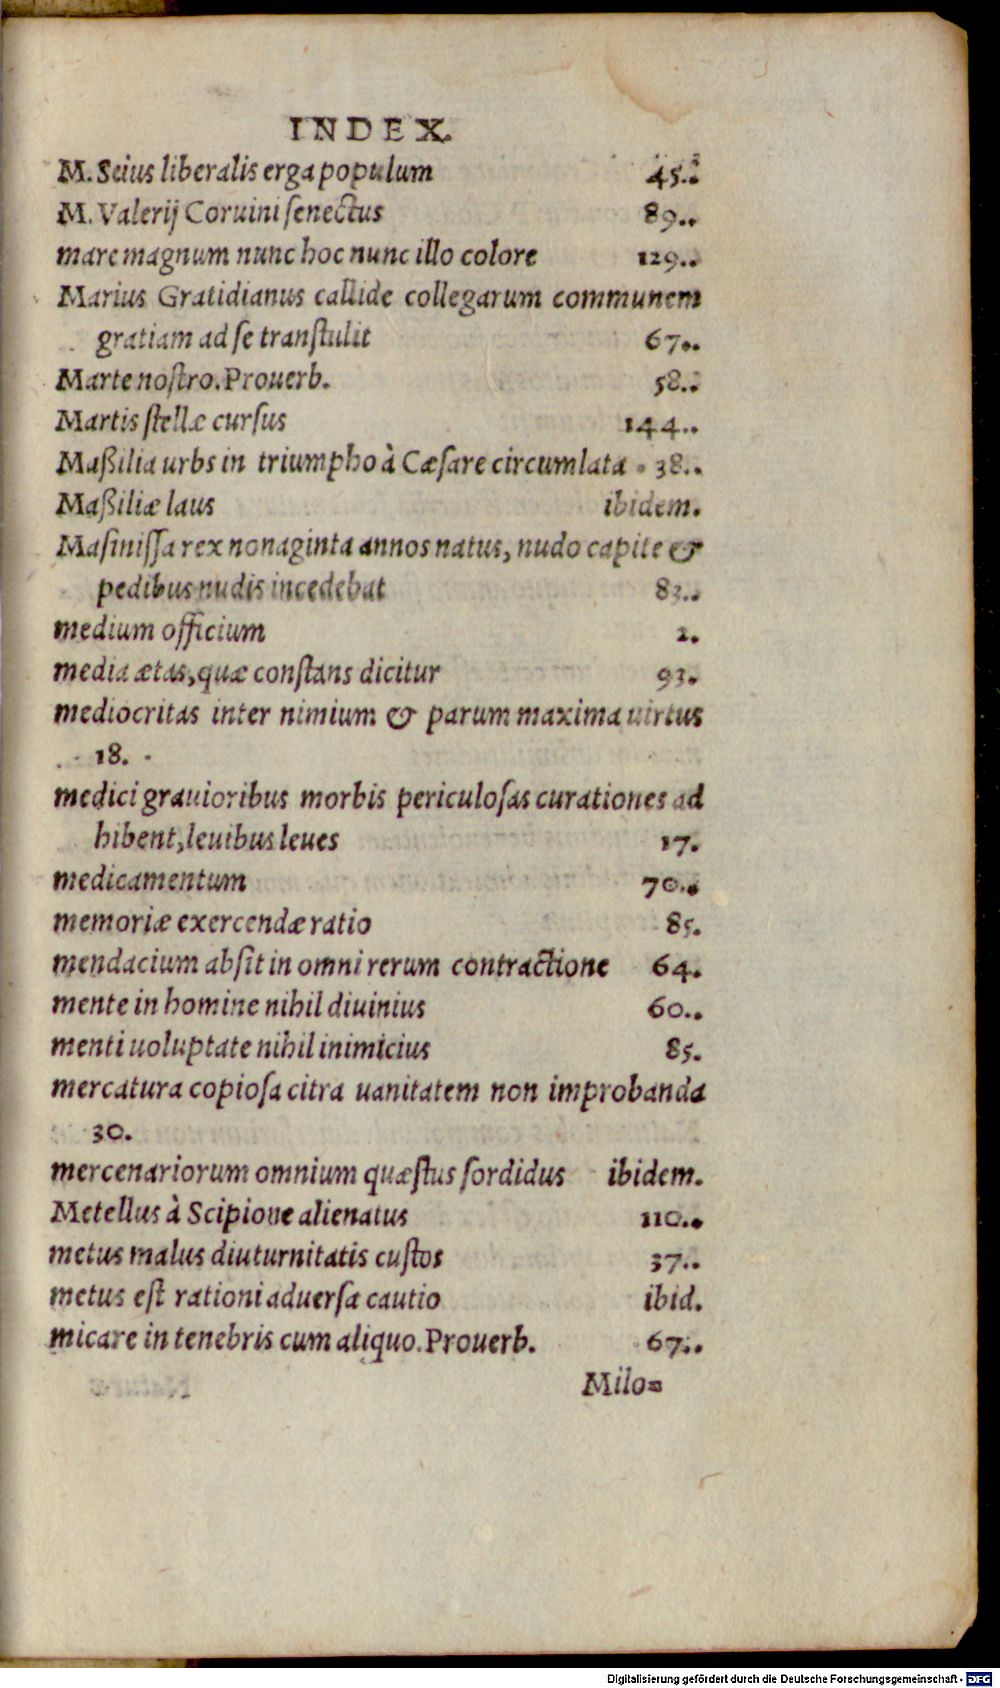 INDEX.
M. Seius liberalis erga populum 45..
M. Valerij Coruini senectus 89..
mare magnum nunc hoc nunc illo colore 129..
Marius Gratidianus callide collegarum communem
gratiam ad se transtulit 67..
Marte nostro. Prouerb. 58..
Martis stellæ cursus 144..
Maßilia urbs in triumpho à Cæsare circumlata 38..
Maßiliæ laus ibidem.
Masinissa rex nonaginta annos natus, nudo capite &
pedibus nudis incedebat 83..
medium officium 2.
media ætas, quæ constans dicitur 93.
mediocritas inter nimium & parum maxima uirtus
18.
medici grauioribus morbis periculosas curationes ad
hibent, leuibus leues 17.
medicamentum 70..
memoriæ exercendæ ratio 85.
mendacium absit in omni rerum contractione 64.
mente in homine nihil diuinius 60..
menti uoluptate nihil inimicius 85.
mercatura copiosa citra uanitatem non improbanda
30.
mercenariorum omnium quæstus sordidus ibidem.
Metellus à Scipione alienatus 110..
metus malus diuturnitatis custos 37..
metus est rationi aduersa cautio ibid.
micare in tenebris cum aliquo. Prouerb. 67..
Milo=
Digitalisierung gefördert durch die Deutsche Forschungsgemeinschaft - DFG